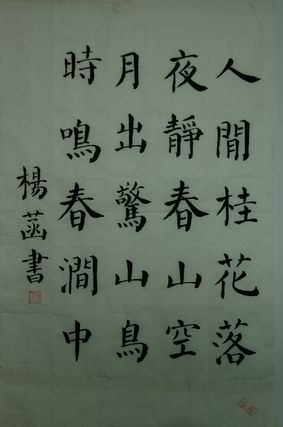 人閒桂花落
夜靜春山空
月出驚山鳥
時鳴春澗中
楊菡書